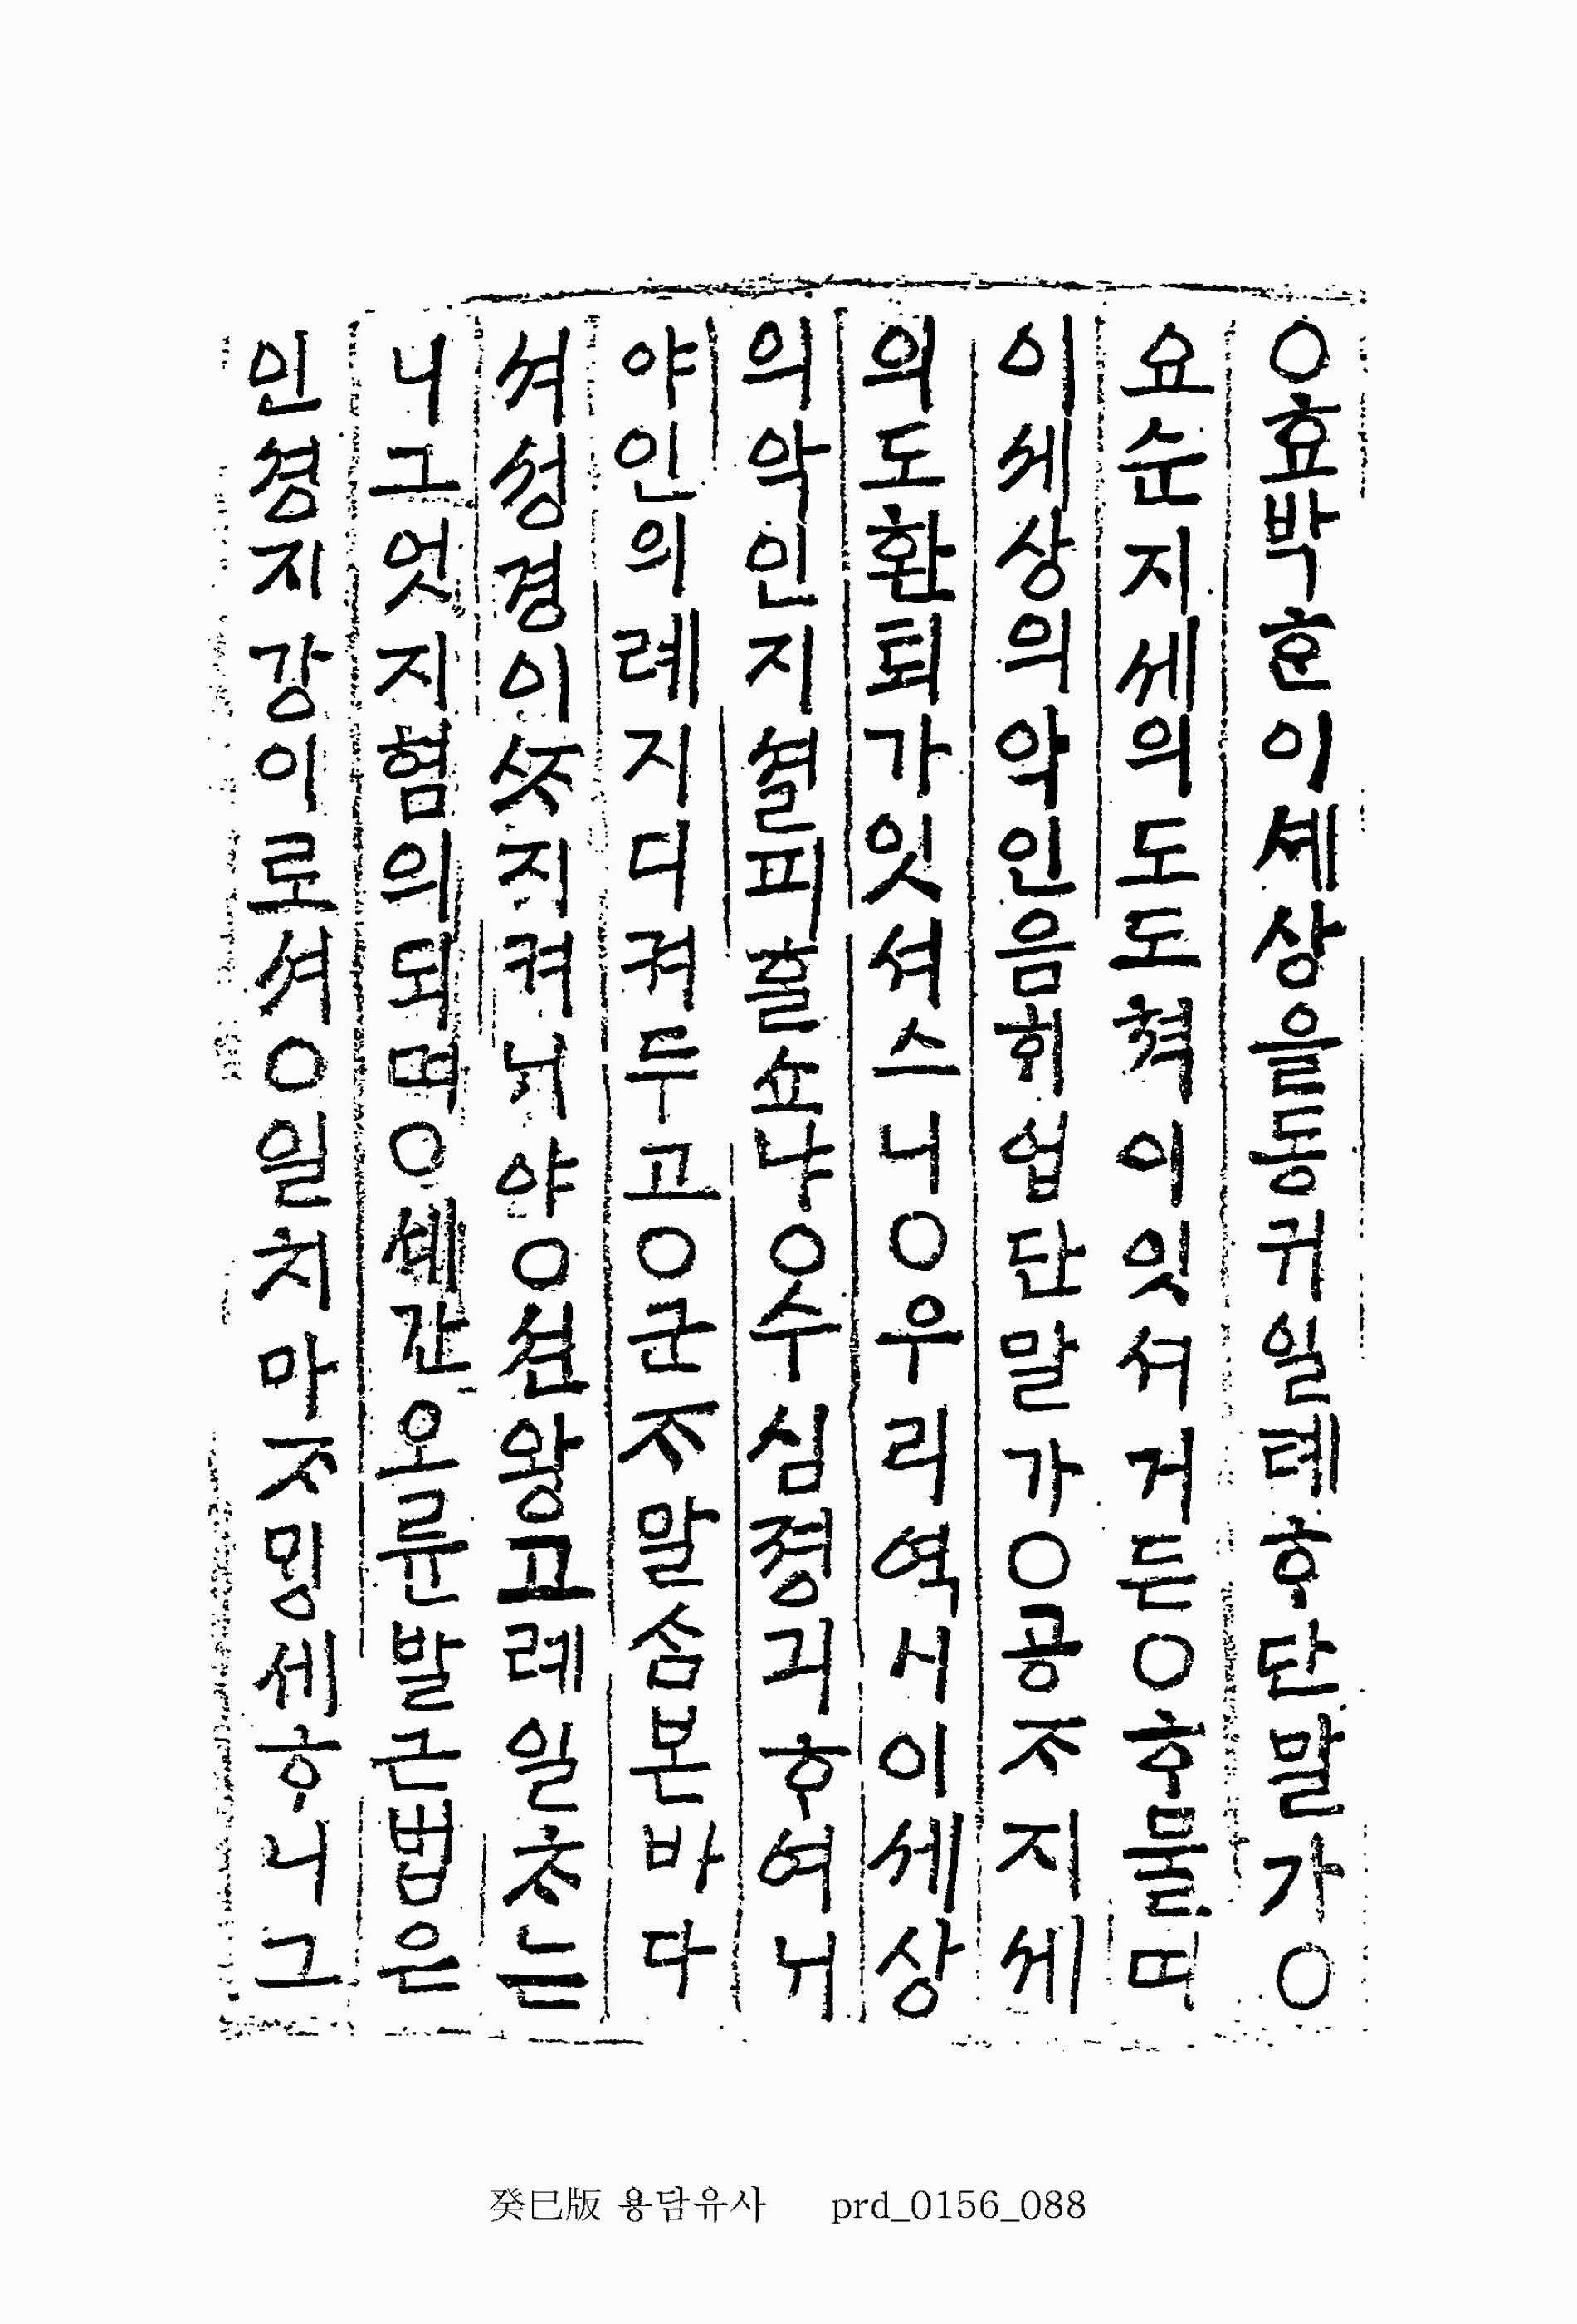 ○효박ᄒᆞᆫ이셰상을동귀일톄ᄒᆞ단말가○
요순지세의도도쳑이잇셔거든○ᄒᆞ물며
이세상의악인음ᄒᆡ업단말가○공ᄌᆞ지세
의도환퇴가잇셔스니○우리역시이세상
의악인지셜피ᄒᆞᆯ쇼냐○수심졍긔ᄒᆞ여ᄂᆡ
야인의례지디켜두고○군ᄌᆞ말ᄉᆞᆷ본바다
셔셩경이ᄶᆞ직켜ᄂᆡ야○션왕고례일ᄎᆞ는
니그엇지혐의되며○셰간오륜발근법은
인셩지강이로셔○일치마ᄌᆞᄆᆡᆼ세ᄒᆞ니그
癸巳版 용담유사 prd_0156_088